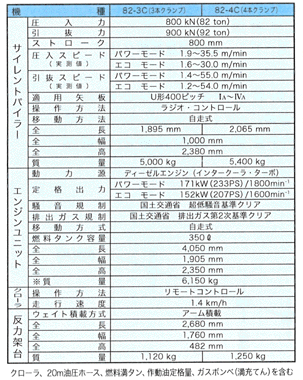 機 種 82-3C(3本クランプ) 82-4C(4本クランプ)
サイレントパイラー
圧入力 800 kN(82 ton)
引抜力 900 kN(92 ton)
ストローク 800 mm
圧入スピード(実測値) パワーモード 1.9～35.5 m/min
エコ モード 1.6～30.0 m/min
引抜スピード(実測値) パワーモード 1.4～55.0 m/min
エコ モード 1.2～54.0 m/min
適用矢板 U形400ピッチ ⅠA～ⅣA
操作方法 ラジオ・コントロール
移動方法 自走式
全長 1,895 mm 2,065 mm
全幅 1,000 mm
全高 2,380 mm
質量 5,000 kg 5,400 kg
エンジンユニット
動力源 ディーゼルエンジン (インタークーラ・ターボ)
定格出力 パワーモード 171kW(233PS)/1800min⁻¹
エコ モード 152kW(207PS)/1600min⁻¹
騒音規制 国土交通省 超低騒音基準クリア
排出ガス規制 国土交通省 排出ガス第2次基準クリア
移動方式 自走式
燃料タンク容量 350ℓ
全長 4,050 mm
全幅 1,905 mm
全高 2,350 mm
※質量 6,150 kg
クローラ
操作方法 リモートコントロール
走行速度 1.4 km/h
反力架台
ウェイト積載方式 アーム積載
全長 2,680 mm
全幅 1,760 mm
全高 482 mm
質量 1,120 kg 1,250 kg
クローラ、20m油圧ホース、燃料満タン、作動油定格量、ガスボンベ(満充てん)を含む